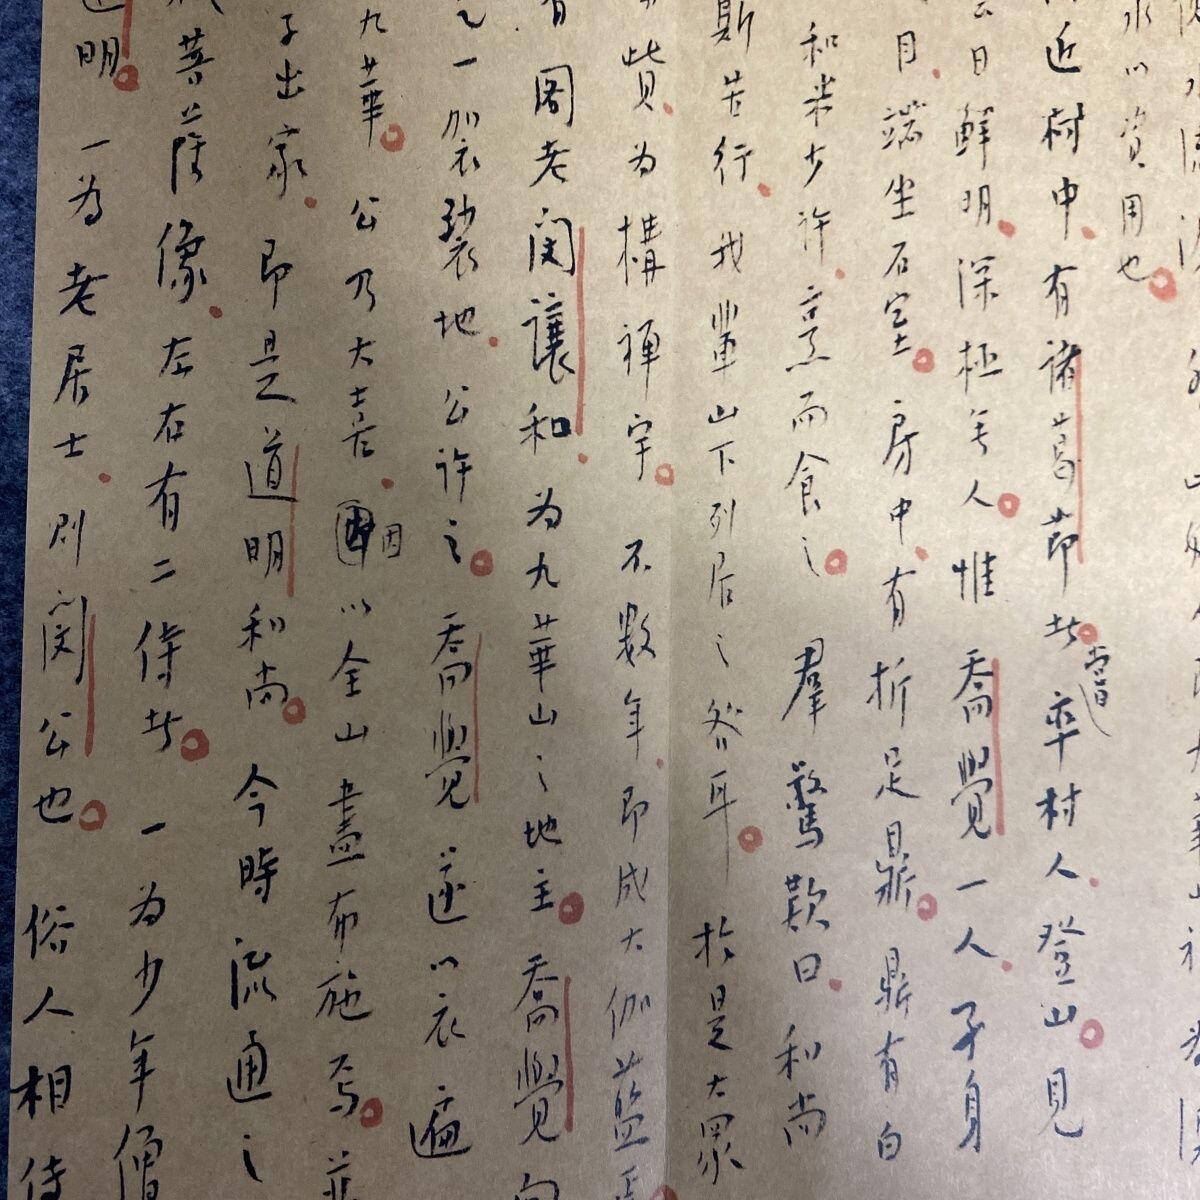 永以資用也
近村中有諸葛節者嘗率村人登山見
云日鮮明深極無人惟喬覺一人孑身
目端坐石室房中有折足鼎鼎有白
和米少許烹而食之羣驚歎曰和尚
斯苦行我輩山下列居之咎耳於是大眾
貲為構禪宇不數年即成大伽藍
有閣老閔讓和為九華山之地主喬覺向
之一袈裟地公許之喬覺遂以衣遍
九華公乃大喜因以全山盡布施焉並
子出家即是道明和尚今時流通之
菩薩像左右有二侍者一為少年僧
道明一為老居士則閔公也俗人相傳